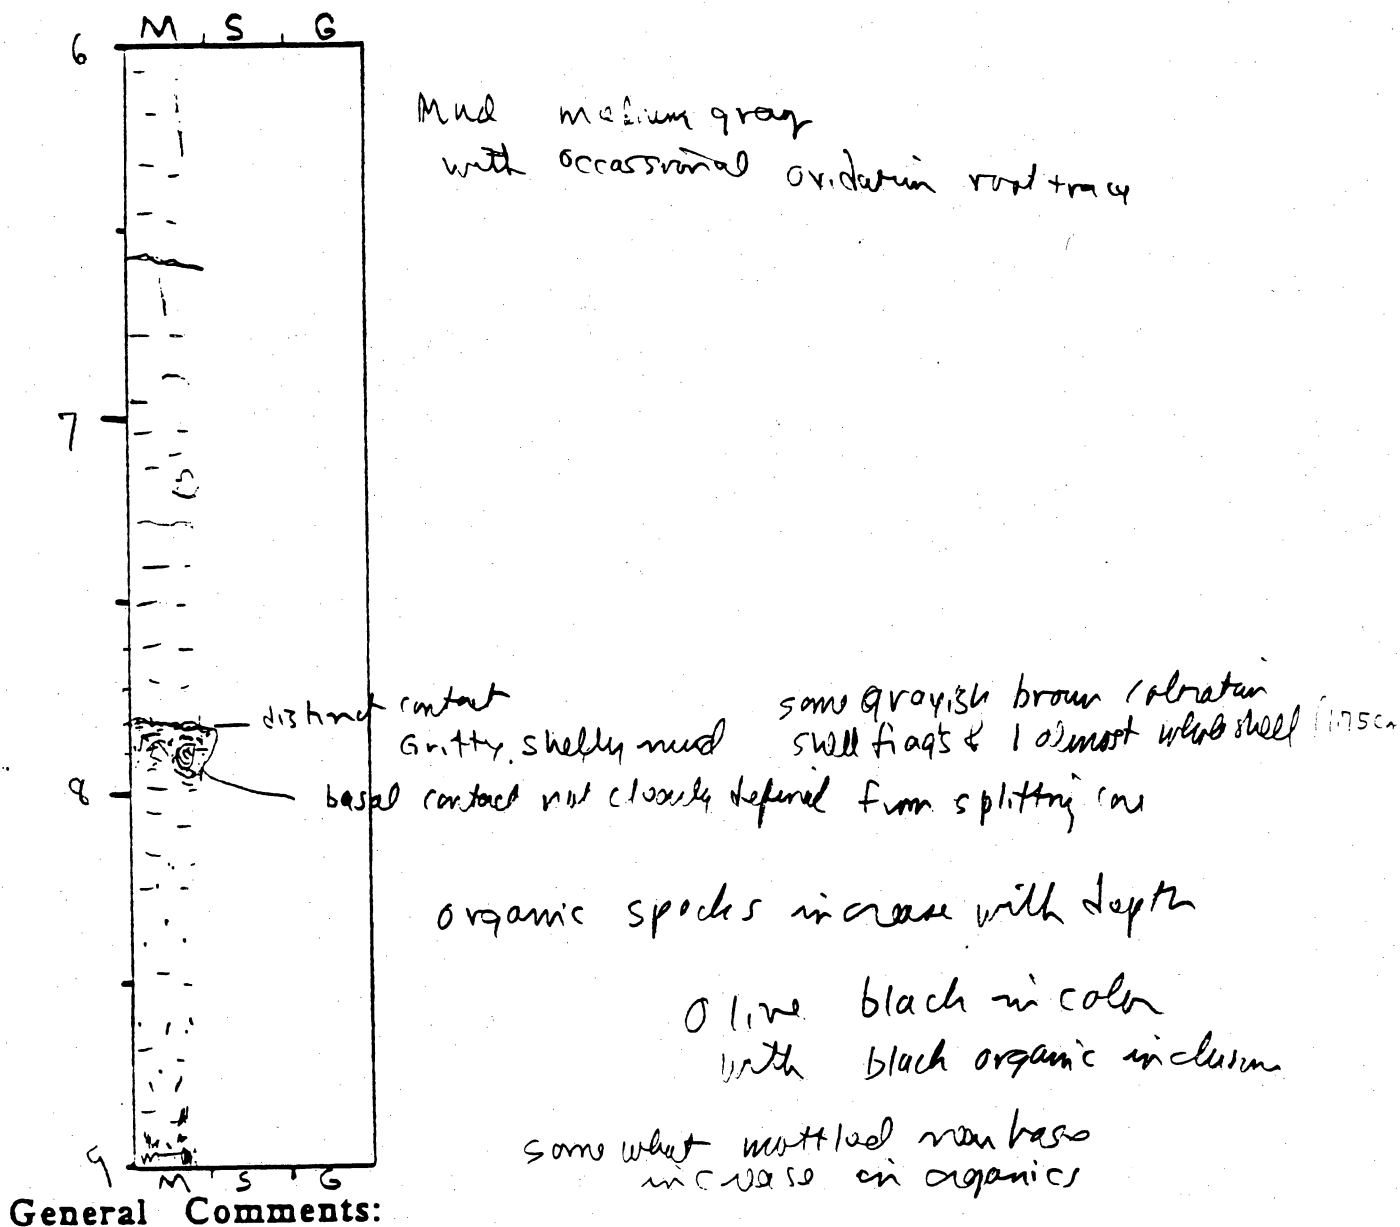 M S G
6
Mud medium gray
with occassional oxidation root trace
7
distinct contact
some grayish brown coloration
Gritty, shelly mud
shell frags & 1 almost whole shell 1.75cm
8
basal contact not clearly defined from splitting core
organic specks increase with depth
Olive black in color
with black organic inclusions
somewhat mottled near base
increase in organics
9
M S G
General Comments: